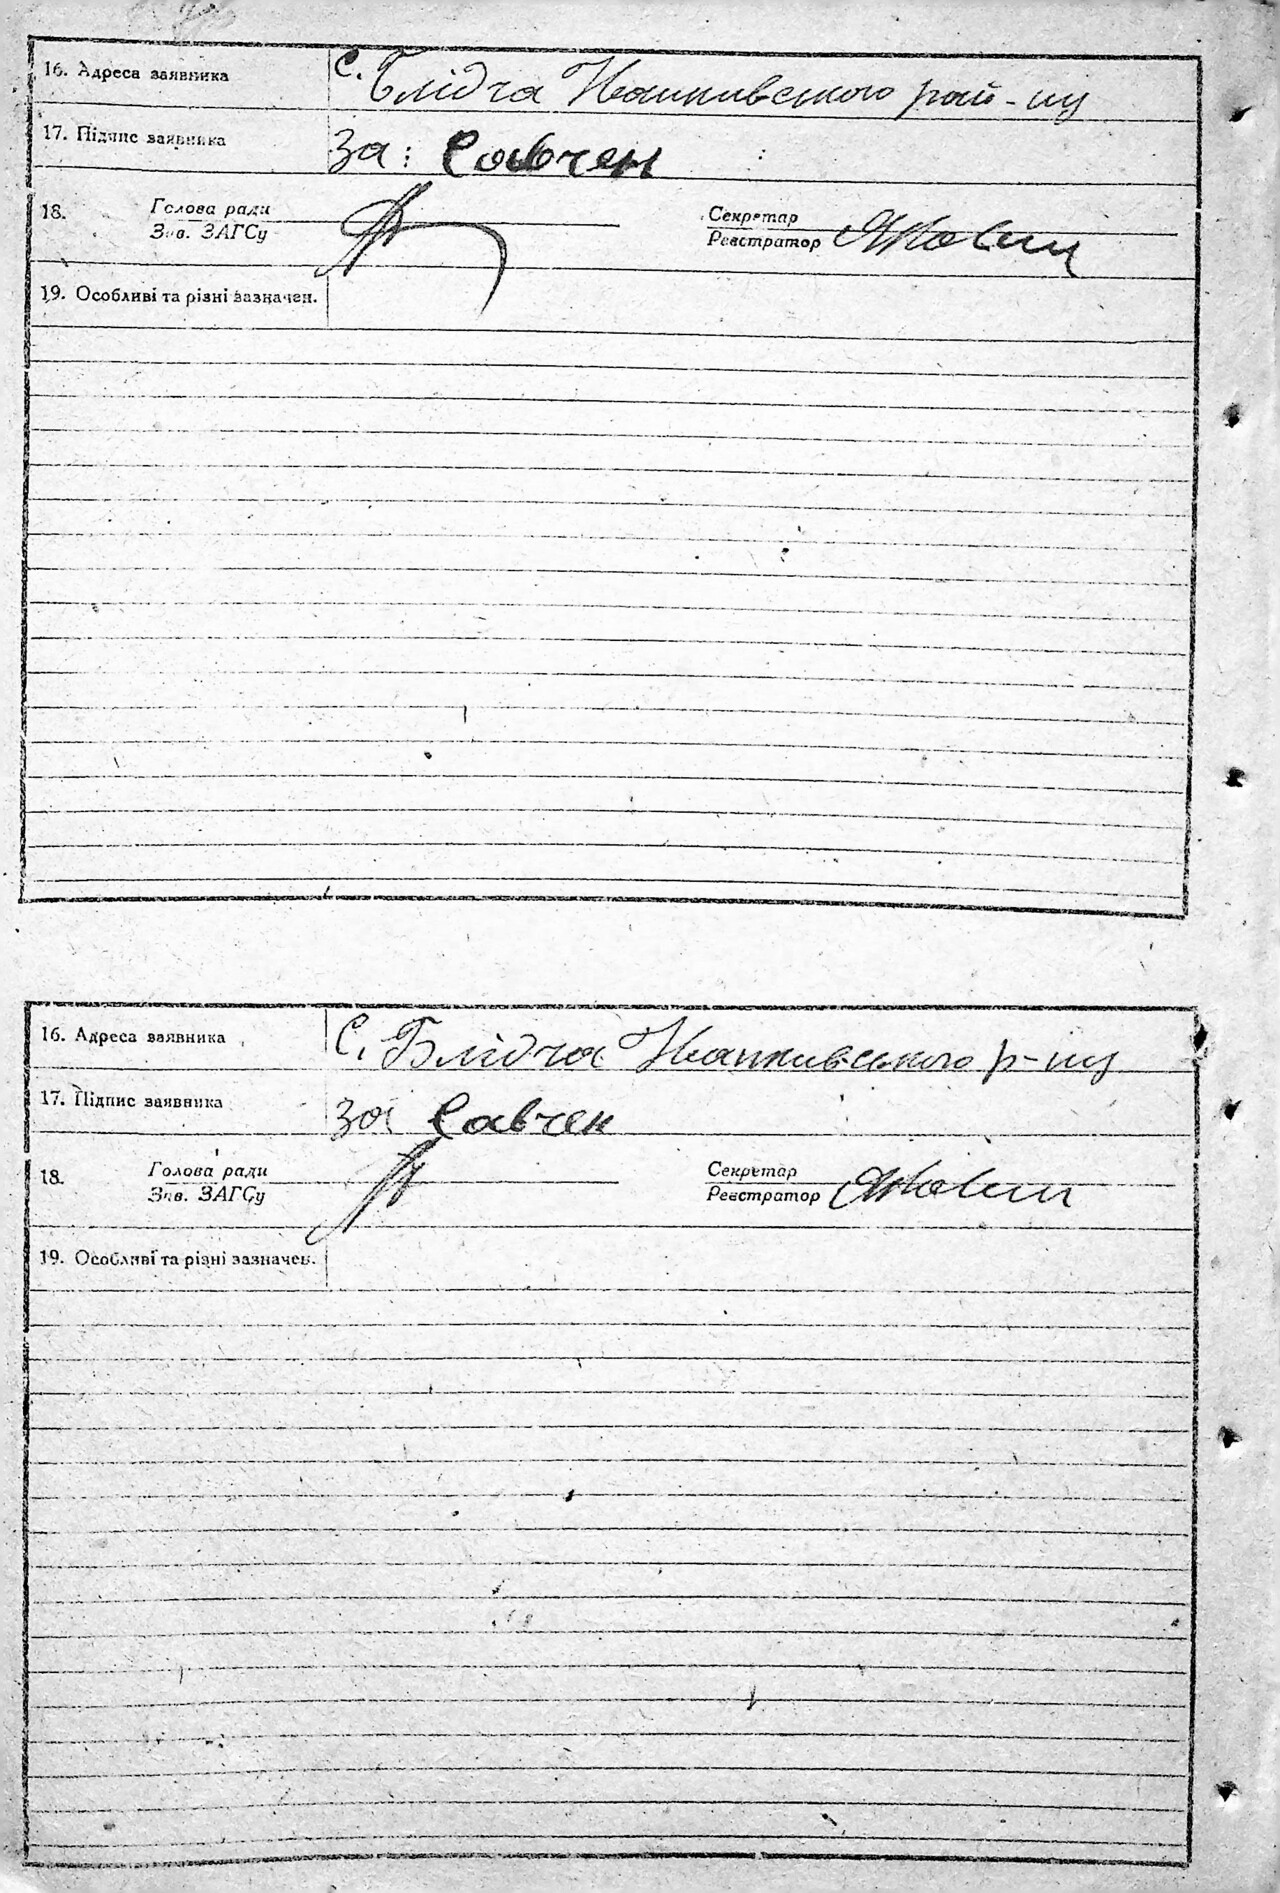 16. Адреса заявника С. Блідча Іванківського рай-ну
17. Підпис заявника за: Савчен
18. Голова ради Секретар
Зав. ЗАГСу Реєстратор
19. Особливі та різні зазначен.
16. Адреса заявника С. Блідча Іванківського р-ну
17. Підпис заявника за Савчен
18. Голова ради Секретар
Зав. ЗАГСу Реєстратор
19. Особливі та різні зазначен.